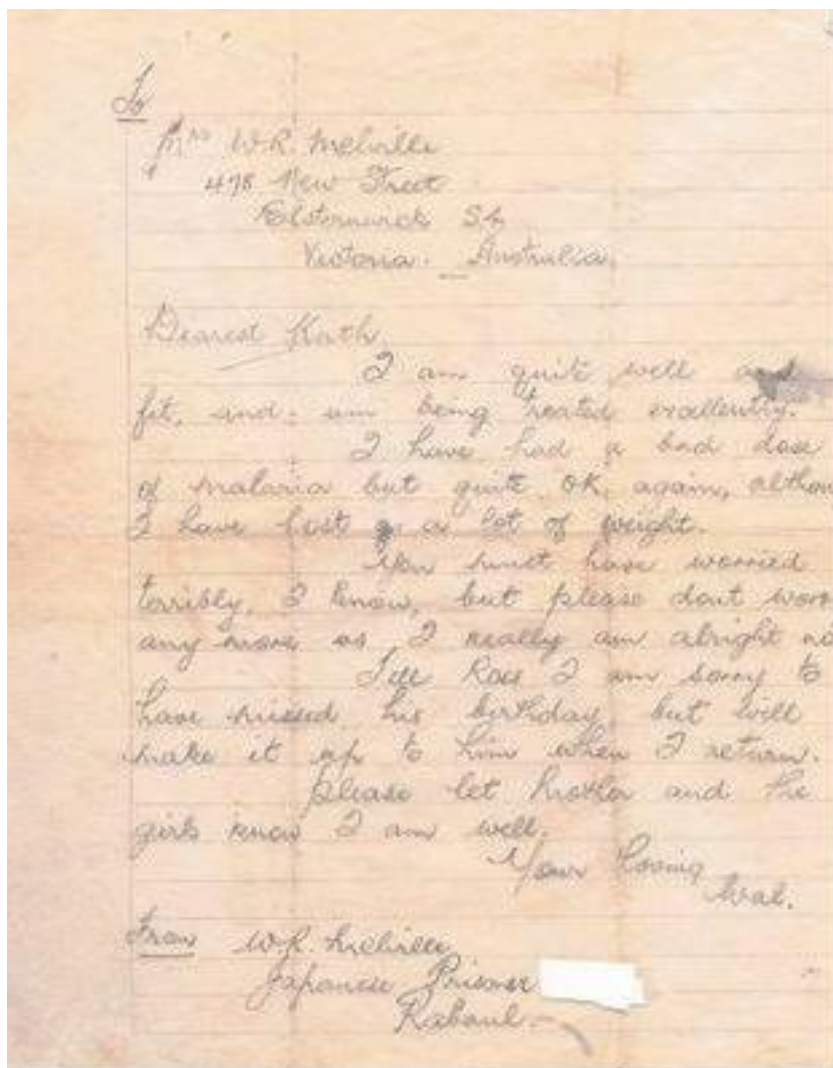 To
Mrs W.R. Melville
478 New Street
Elsternwick S4
Victoria. Australia.
Dearest Kath,
I am quite well and
fit, and am being treated excellently.
I have had a bad dose
of malaria but quite OK, again, althou
I have lost a lot of weight.
You must have worried
terribly, I know, but please dont worr
any more as I really am alright no
Tell Ross I am sorry to
have missed his birthday but will
make it up to him when I return.
please let Mother and the
girls know I am well.
Your loving
Wal.
From W.R. Melville
Japanese Prisoner
Rabaul.